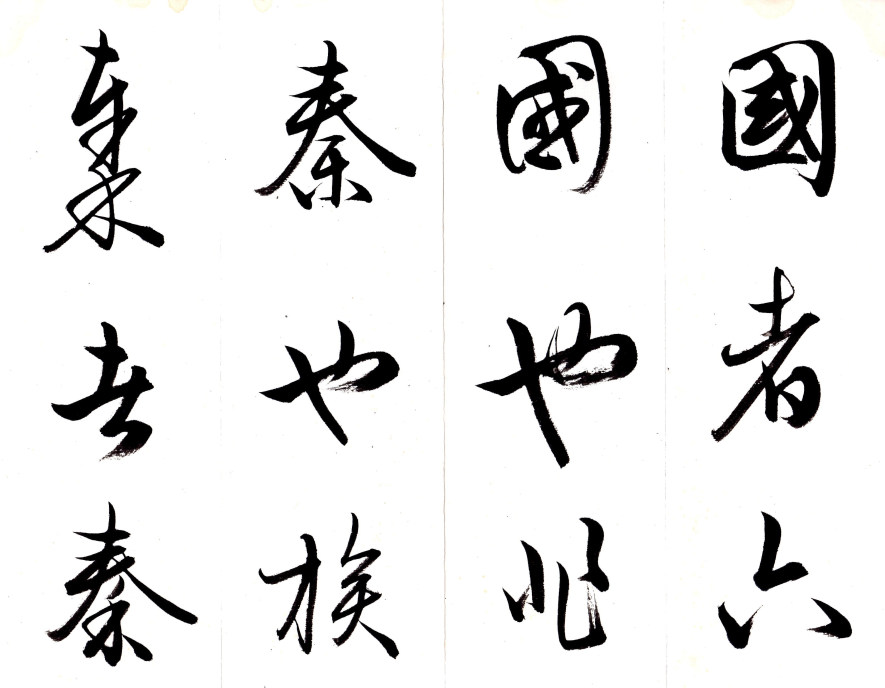 國者六
國也非
秦也族
秦者秦